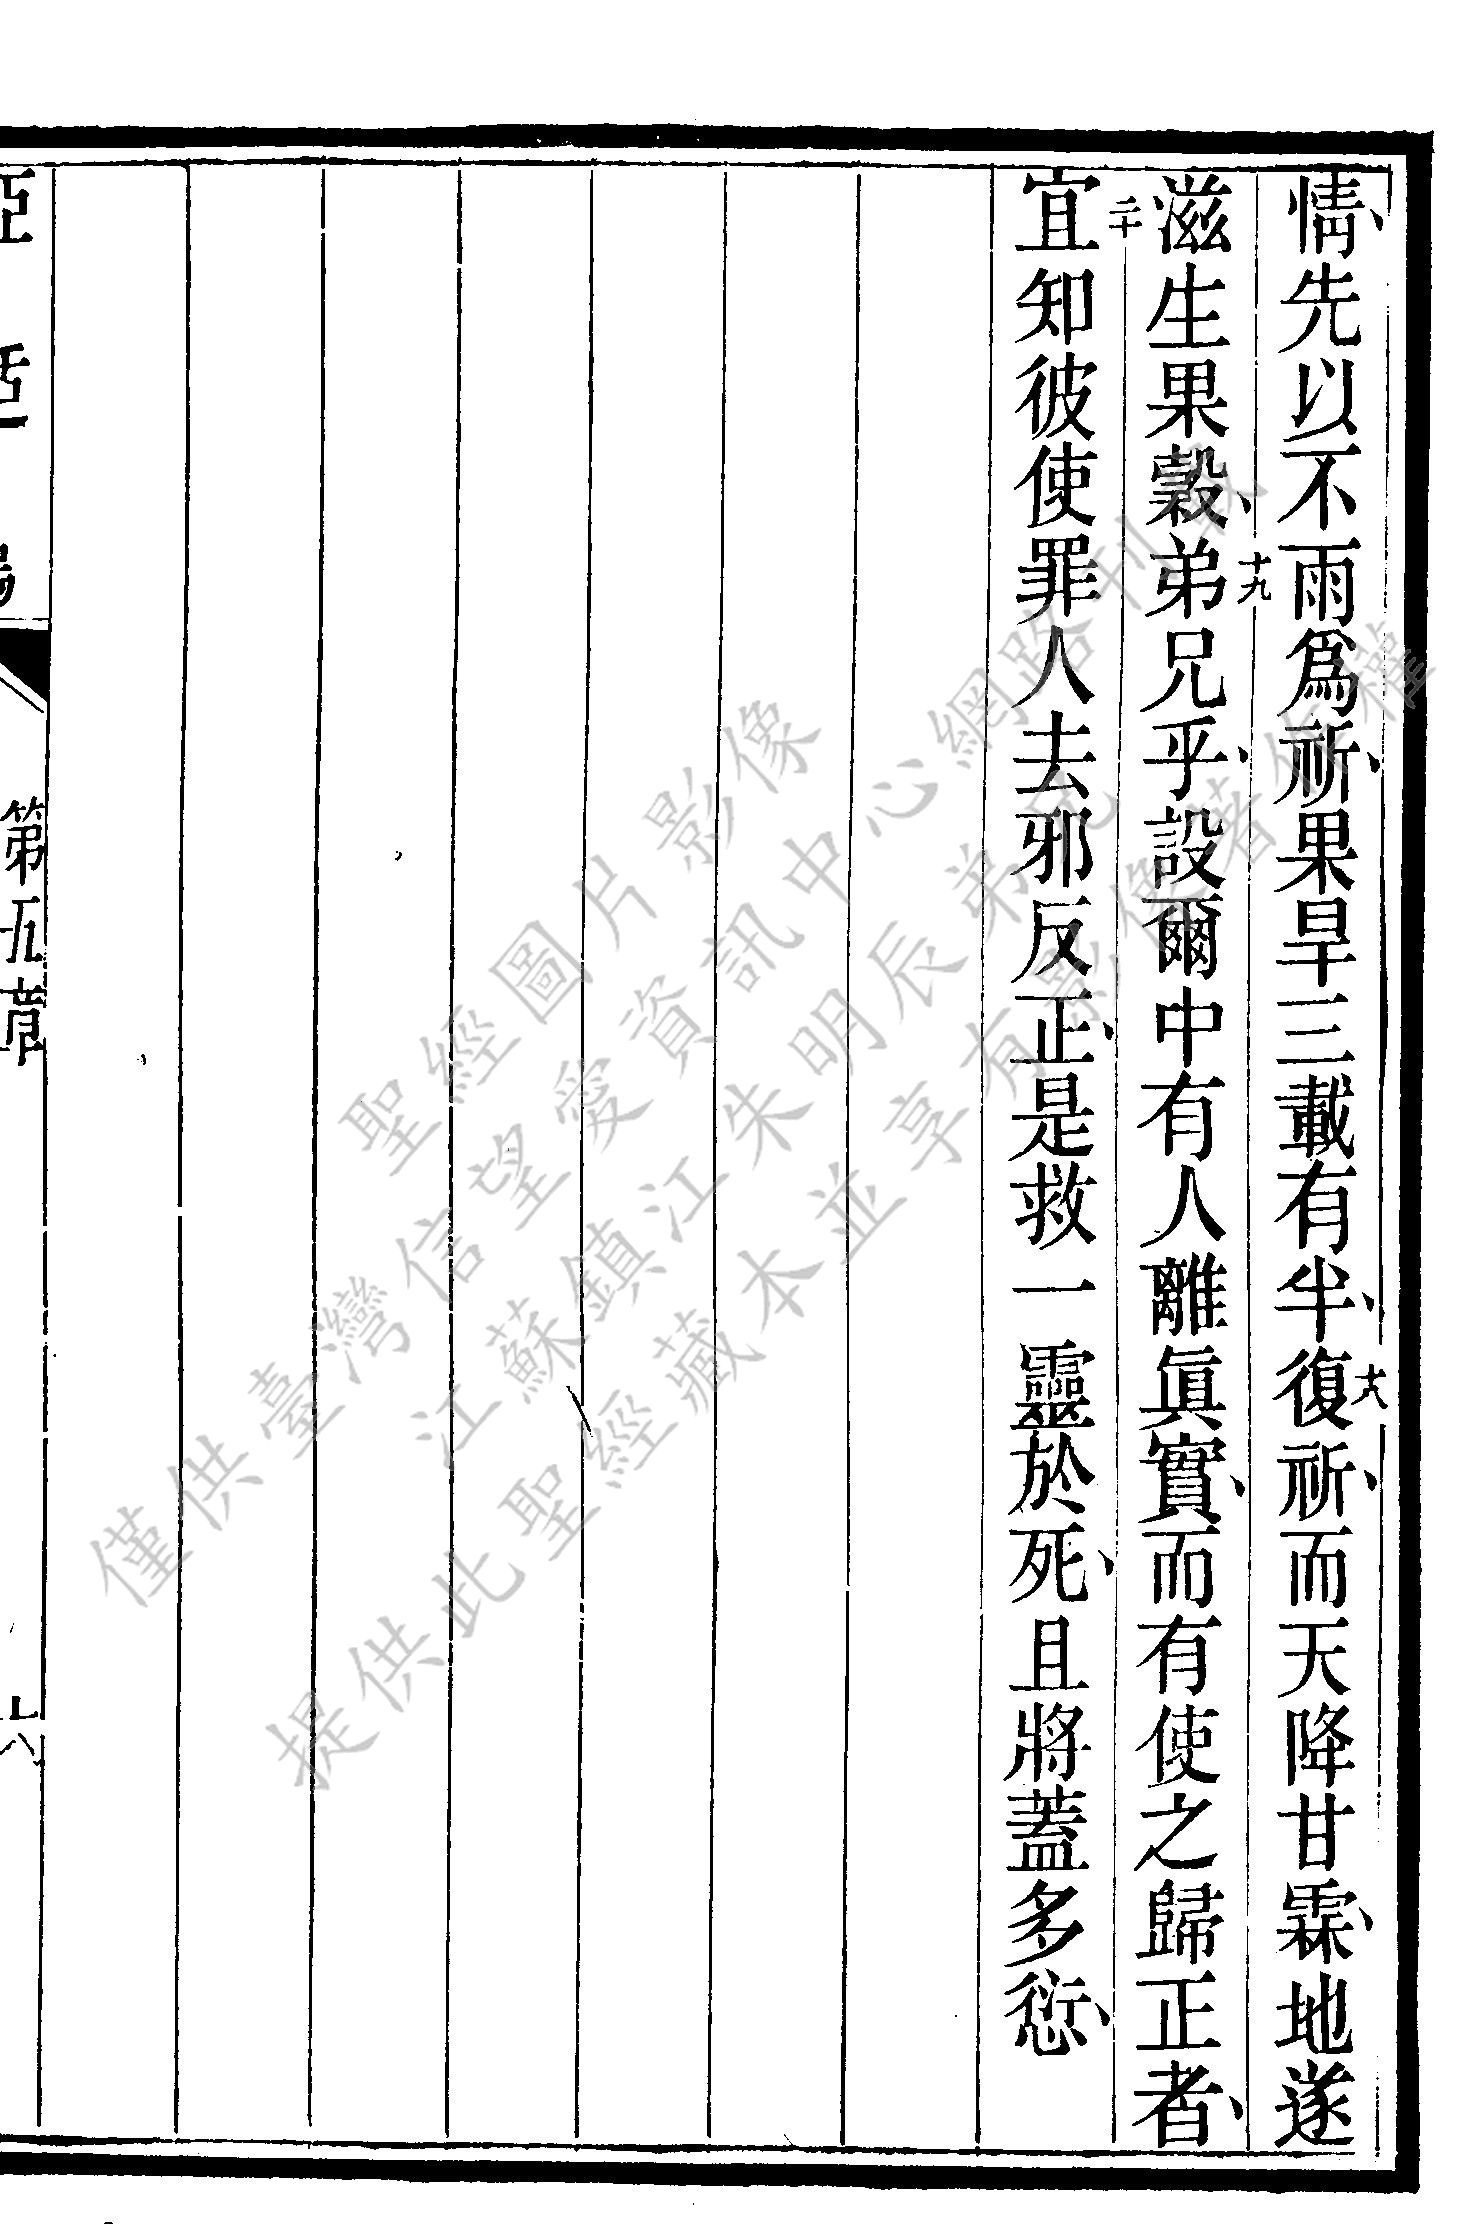 情、先以不雨爲祈、果旱三載有半、十八復祈、而天降甘霖、地遂
滋生果穀、十九弟兄乎、設爾中有人離眞實、而有使之歸正者、
二十宜知彼使罪人去邪反正、是救一靈於死、且將蓋多愆、
第五章
聖經圖片影像
僅供臺灣信望愛資訊中心網路刊載
江蘇鎮江朱明辰弟兄
提供此聖經藏本並享有影像著作權